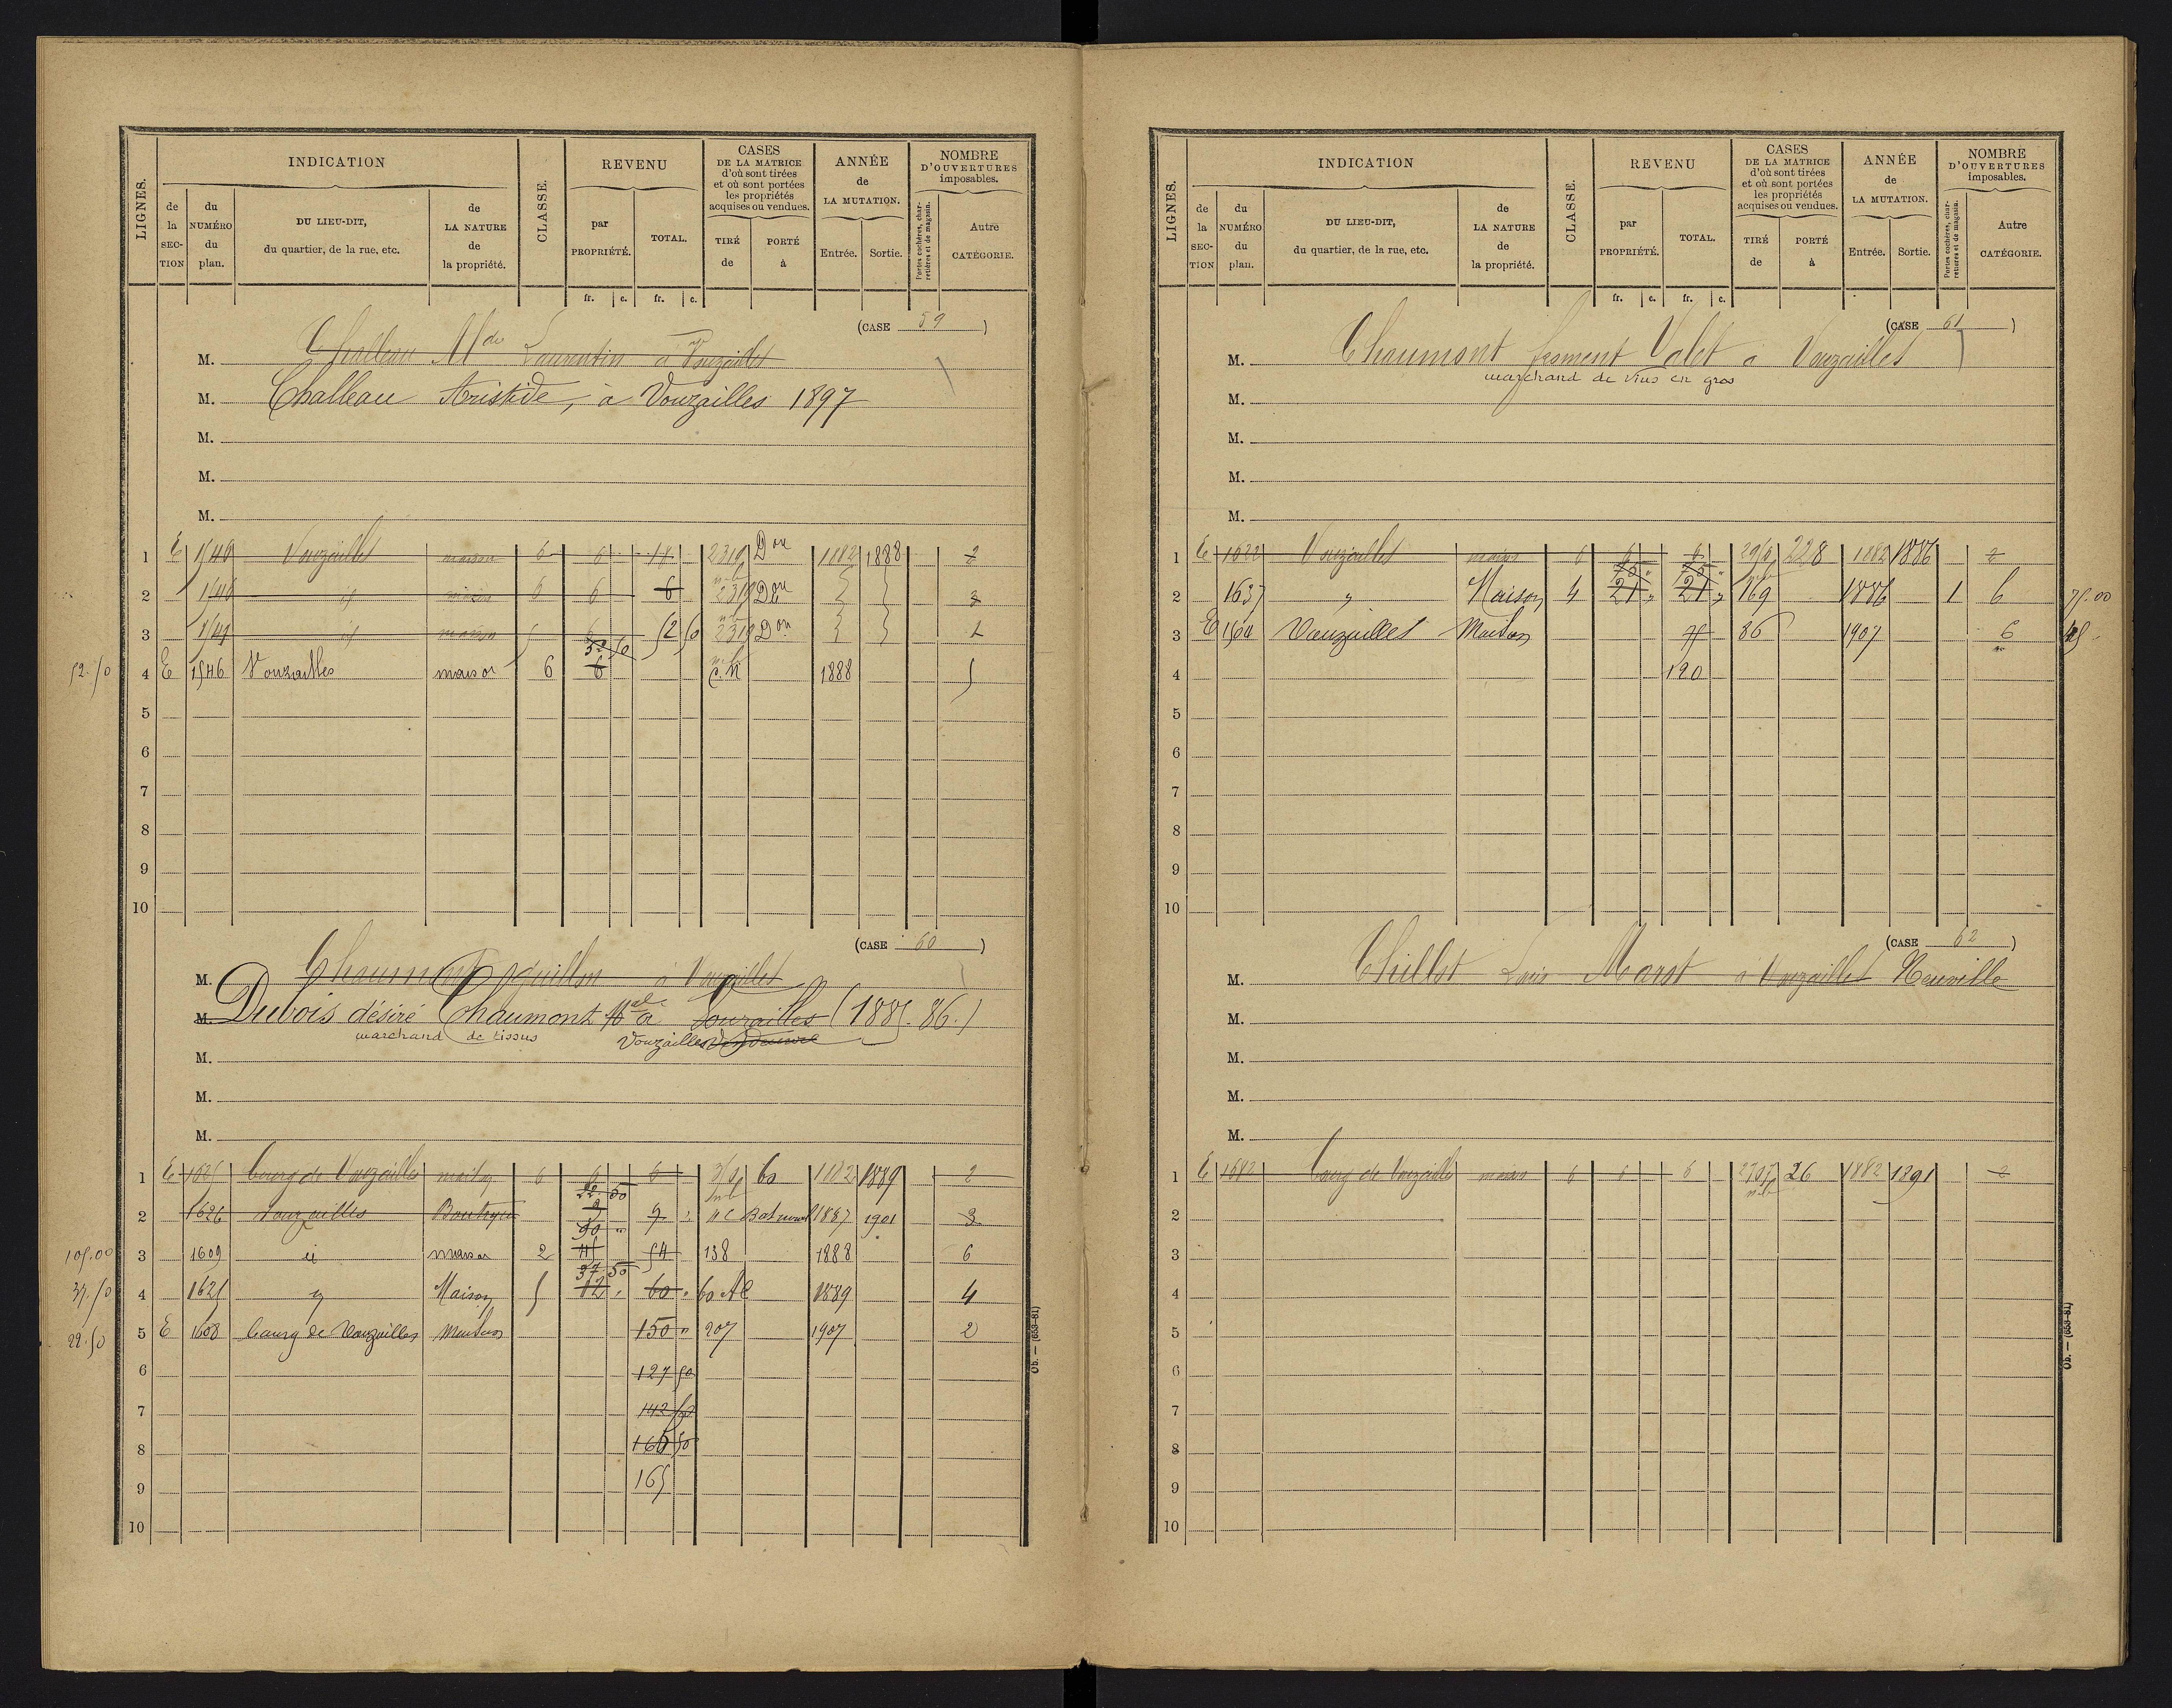 LIGNES.
INDICATION
de la SECTION
du NUMÉRO du plan.
DU LIEU-DIT, du quartier, de la rue, etc.
de LA NATURE de la propriété.
CLASSE.
REVENU
par PROPRIÉTÉ.
TOTAL.
fr. c. fr. c.
CASES DE LA MATRICE d'où sont tirées et où sont portées les propriétés acquises ou vendues.
TIRÉ de
PORTÉ à
ANNÉE de LA MUTATION.
Entrée. Sortie.
NOMBRE D'OUVERTURES imposables.
Portes cochères, charretières et de magasin.
Autre CATÉGORIE.
(CASE 59)
M. Challeau Laurentin à Vouzailles
M. Challeau Aristide, à Vouzailles 1897
M.
M.
M.
1 E 1546 Vouzailles maison 6 6 18 2319 Don 1882 1888 2
2 1546 id 6 6 6 2319 Don 3
3 id maison 5 52 50 2319 Don
52.50 4 E 1546 Vouzailles maison 6 6 c.n 1888 5
5
6
7
8
9
10
(CASE 60)
M. Chaumont à Vouzailles
M. Dubois désiré Chaumont à Vouzailles (1885.86.)
marchand de tissus Vouzailles
M.
M.
M.
1 E 1625 bourg de Vouzailles maison 6 6 6 60 1882 1889 2
2 1626 Vouzailles 22 50 9 9 1887 1901 3
105.00 3 1609 id maison 2 90 45 54 138 1888 6
37.50 4 1625 Maison 5 37 50 12 60 60 1889 4
22.50 5 E 1608 bourg de Vouzailles Maison 150 207 1907 2
6 127 50
7 142 50
8 160 50
9 165
10
Ob. — (653-81)
LIGNES.
INDICATION
de la SECTION
du NUMÉRO du plan.
DU LIEU-DIT, du quartier, de la rue, etc.
de LA NATURE de la propriété.
CLASSE.
REVENU
par PROPRIÉTÉ.
TOTAL.
fr. c. fr. c.
CASES DE LA MATRICE d'où sont tirées et où sont portées les propriétés acquises ou vendues.
TIRÉ de
PORTÉ à
ANNÉE de LA MUTATION.
Entrée. Sortie.
NOMBRE D'OUVERTURES imposables.
Portes cochères, charretières et de magasin.
Autre CATÉGORIE.
(CASE 61)
M. Chaumont froment Valet à Vouzailles
marchand de vins en gros
M.
M.
M.
M.
1 E 1622 Vouzailles maison 6 6 6 228 1882 1886 2
2 1637 " Maison 4 75 21 " 75 21 " 169 1886 1 6 75.00
3 E 1504 Vouzailles Maison 75 86 1907 6 45
4 120
5
6
7
8
9
10
(CASE 62)
M. Chillot Louis Marot à Vouzailles Neuville
M.
M.
M.
M.
1 E 1582 bourg de Vouzailles maison 6 6 6 26 1882 1891 2
2
3
4
5
6
7
8
9
10
Ob. — (653-81)